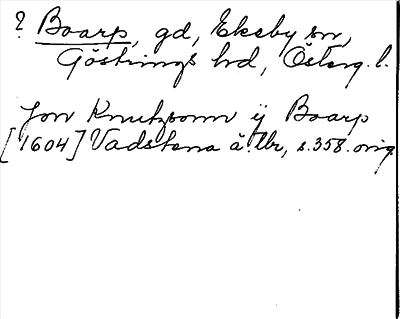 ? Boarp, gd, Ekeby sn,
Göstrings hd, Österg. l.
Jon Knutzonn ÿ Boarp
[1604] Vadstena ä. tbr, s. 358. orig.